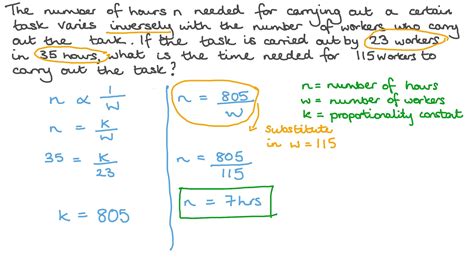 The number of hours n needed for carrying out a certain
task varies inversely with the number of workers who carry
out the task. If the task is carried out by 23 workers
in 35 hours, what is the time needed for 115 workers to
carry out the task?
n = number of hours
w = number of workers
k = proportionality constant
n ∝ 1/w
n = k/w
35 = k/23
k = 805
n = 805/w
substitute
in w = 115
n = 805/115
n = 7hrs